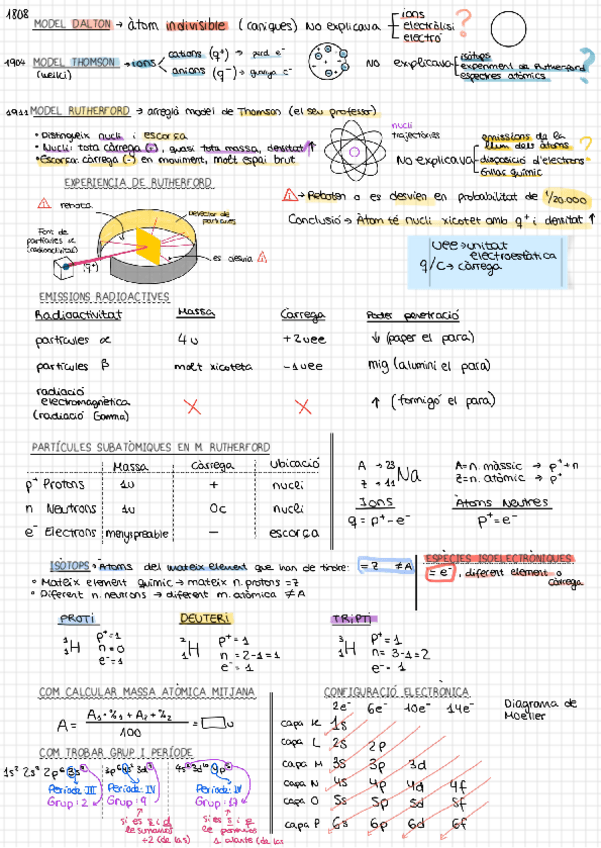 1808
MODEL DALTON → àtom indivisible (caniques) NO explicava
ions
electròlisi
electró
?
1904 MODEL THOMSON → ions
(kelki)
cations (q⁺) → perd e⁻
anions (q⁻) → guanya e⁻
NO explicava
isòtops
experiment de Rutherford
espectres atòmics
?
1911 MODEL RUTHERFORD → arreglà model de Thomson (el seu professor)
• Distingeix nucli i escorça
• Nucli: tota càrrega (+), quasi tota massa, densitat ↑
• Escorça: càrrega (-) en moviment, molt espai brut
nucli
trajectòries
NO explicava
emissions de la llum dels àtoms
disposició d'electrons
Enllaç químic
?
EXPERIENCIA DE RUTHERFORD
rebota
Detector de partícules
Font de partícules α (radioactivitat)
(q⁺)
es desvia
→ Reboten o es desvien en probabilitat de 1/20.000
Conclusió → Àtom té nucli xicotet amb q⁺ i densitat ↑
uee → unitat electroestàtica
q/C → càrrega
EMISSIONS RADIOACTIVES
Radioactivitat Massa Càrrega Poder penetració
partícules α 4u +2uee ↓ (paper el para)
partícules β molt xicoteta -1uee mig (alumini el para)
radiació electromagnètica (radiació Gamma) X X ↑ (formigó el para)
PARTÍCULES SUBATÒMIQUES EN M. RUTHERFORD
Massa Càrrega Ubicació
p⁺ Protons 1u + nucli
n Neutrons 1u 0c nucli
e⁻ Electrons menyspreable - escorça
A → 23 Na
Z → 11
A = n. màssic → p⁺ + n
Z = n. atòmic → p⁺
Ions
q = p⁺ - e⁻
Àtoms Neutres
p⁺ = e⁻
ISÒTOPS → Àtoms del mateix element que han de tindre: = Z ≠ A
• Mateix element químic → mateix n. protons = Z
• Diferent n. neutrons → diferent m. atòmica ≠ A
ESPÈCIES ISOELECTRÒNIQUES
= e⁻, diferent element o càrrega
PROTI
¹₁H p⁺ = 1
n = 0
e⁻ = 1
DEUTERI
²₁H p⁺ = 1
n = 2-1 = 1
e⁻ = 1
TRITI
³₁H p⁺ = 1
n = 3-1 = 2
e⁻ = 1
COM CALCULAR MASSA ATÒMICA MITJANA
A = A₁ · %₁ + A₂ + %₂ / 100 = u
COM TROBAR GRUP I PERÍODE
1s² 2s² 2p⁶ 3s²
Període: III
Grup: 2
3p⁶ 4s² 3d⁷
Període: IV
Grup: 9
si es s i d
le sumamos
+2 (de la s)
4s² 3d¹⁰ 4p⁵
Període: IV
Grup: 17
si es s i p
le ponemos
1 delante (de las
CONFIGURACIÓ ELECTRÒNICA
2e⁻ 6e⁻ 10e⁻ 14e⁻
Diagrama de Moeller
capa K 1s
capa L 2s 2p
capa M 3s 3p 3d
capa N 4s 4p 4d 4f
capa O 5s 5p 5d 5f
capa P 6s 6p 6d 6f